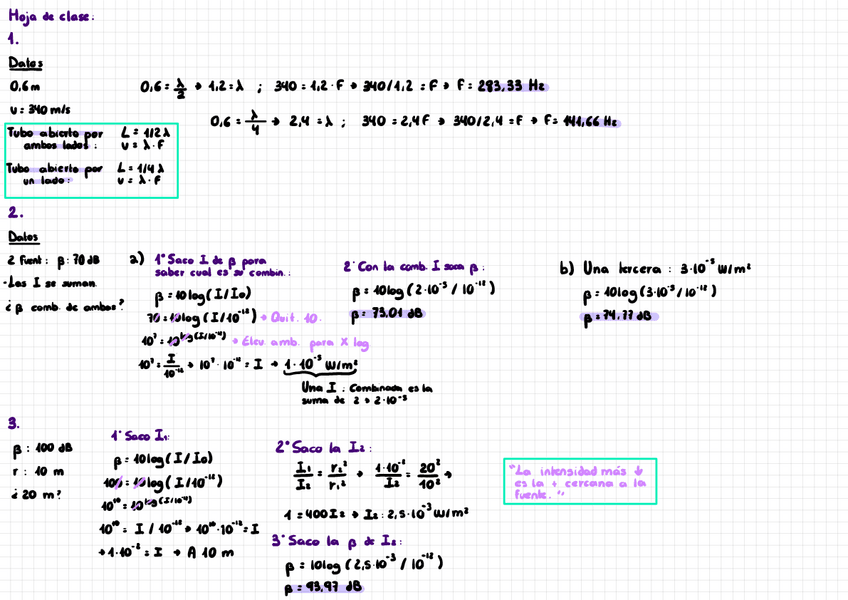 Hoja de clase:
1.
Datos
0,6 m
v = 340 m/s
0,6 = λ/2 → 1,2 = λ ; 340 = 1,2 · F → 340/1,2 = F → F = 283,33 Hz
0,6 = λ/4 → 2,4 = λ ; 340 = 2,4 F → 340/2,4 = F → F = 141,66 Hz
Tubo abierto por ambos lados: L = 1/2 λ
v = λ · F
Tubo abierto por un lado: L = 1/4 λ
v = λ · F
2.
Datos
2 Fuent: β: 70 dB
-Las I se suman.
¿β comb. de ambos?
a) 1° Saco I de β para
saber cual es su combin.:
β = 10 log (I/I0)
70 = 10 log (I/10⁻¹²) → Quit. 10.
10⁷ = 10^log(I/10⁻¹²) → Elev. amb. para X log
10⁷ = I/10⁻¹² → 10⁷ · 10⁻¹² = I → 1·10⁻⁵ W/m²
Una I : Combinada es la
suma de 2 → 2·10⁻⁵
2° Con la comb. I saca β:
β = 10 log (2·10⁻⁵ / 10⁻¹²)
β = 73,01 dB
b) Una tercera : 3·10⁻⁵ W/m²
β = 10 log (3·10⁻⁵ / 10⁻¹²)
β = 74,77 dB
3.
β : 100 dB
r : 10 m
¿ 20 m?
1° Saco I1:
β = 10 log (I/I0)
100 = 10 log (I/10⁻¹²)
10¹⁰ = 10^log(I/10⁻¹²)
10¹⁰ = I / 10⁻¹² → 10¹⁰·10⁻¹² = I
→ 1·10⁻² = I → A 10 m
2° Saco la I2:
I1/I2 = r2²/r1² → 1·10⁻²/I2 = 20²/10² →
1 = 400 I2 → I2: 2,5·10⁻³ W/m²
3° Saco la β de I2:
β = 10 log (2,5·10⁻³ / 10⁻¹²)
β = 93,97 dB
"La intensidad más ↓
es la + cercana a la
fuente."